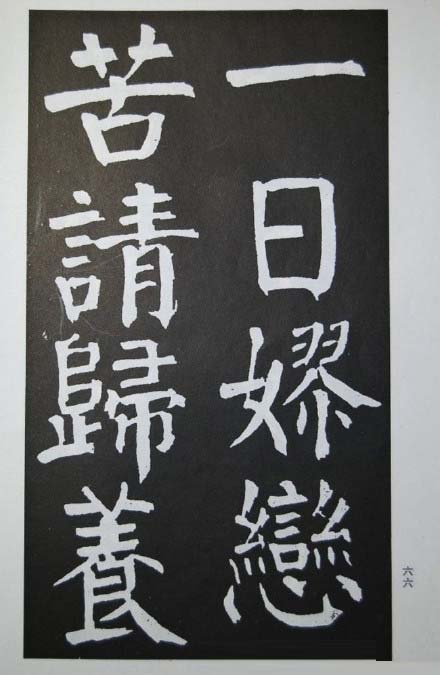 一日嫪戀
苦請歸養
六六